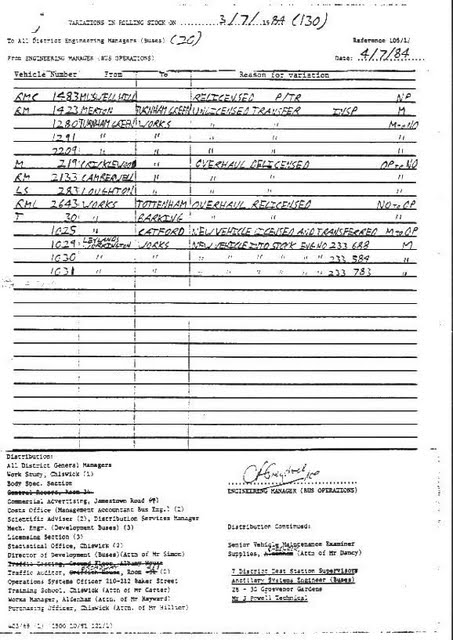 VARIATIONS IN ROLLING STOCK ON 3/7/1984 (130)
To All District Engineering Managers (Buses) (20) Reference 105/1/
From ENGINEERING MANAGER (BUS OPERATIONS) Date: 4/7/84
Vehicle Number From To Reason for variation
RMC 1483 MUSWELL HILL RELICENSED P/TR NP
RM 1423 MERTON TURNHAM GREEN UNLICENSED TRANSFER INSP M
1280 TURNHAM GREEN WORKS " " M to NO
1291 " " " " "
2209 " " " " "
M 219 CRICKLEWOOD " OVERHAUL DELICENSED OP to NO
RM 2133 CAMBERWELL " " " "
LS 283 LOUGHTON " " " "
RML 2643 WORKS TOTTENHAM OVERHAUL RELICENSED NO to OP
T 30 " BARKING " " "
1025 " CATFORD NEW VEHICLE LICENSED AND TRANSFERRED M to OP
1029 LEYLAND WORKINGTON WORKS NEW VEHICLE INTO STOCK ENG NO 233 688 M
1030 " " " " " " " " 233 584 "
1031 " " " " " " " " 233 783 "
Distribution:
All District General Managers
Work Study, Chiswick (1)
Body Spec. Section
General Record, Room
Commercial Advertising, Jamestown Road
Costs Office (Management Accountant Bus Eng.) (2)
Scientific Adviser (2), Distribution Services Manager
Mech. Engr. (Development Buses) (3)
Licensing Section (3)
Statistical Office, Chiswick (2)
Director of Development (Buses)(Attn of Mr Simon)
Traffic Costing, Ground Floor, Albany House
Traffic Auditor, Room
Operations Systems Officer 210-212 Baker Street
Training School, Chiswick (Attn of Mr Carter)
Works Manager, Aldenham (Attn. of Mr Hayward)
Purchasing Officer, Chiswick (Attn of Mr Hillier)
ENGINEERING MANAGER (BUS OPERATIONS)
Distribution Continued:
Senior Vehicle Maintenance Examiner
Supplies, (Attn of Mr Dancy)
7 District Dest Station Supervisors
Ancillary Systems Engineer (Buses)
28 - 31 Grosvenor Gardens
Mr J Powell Technical